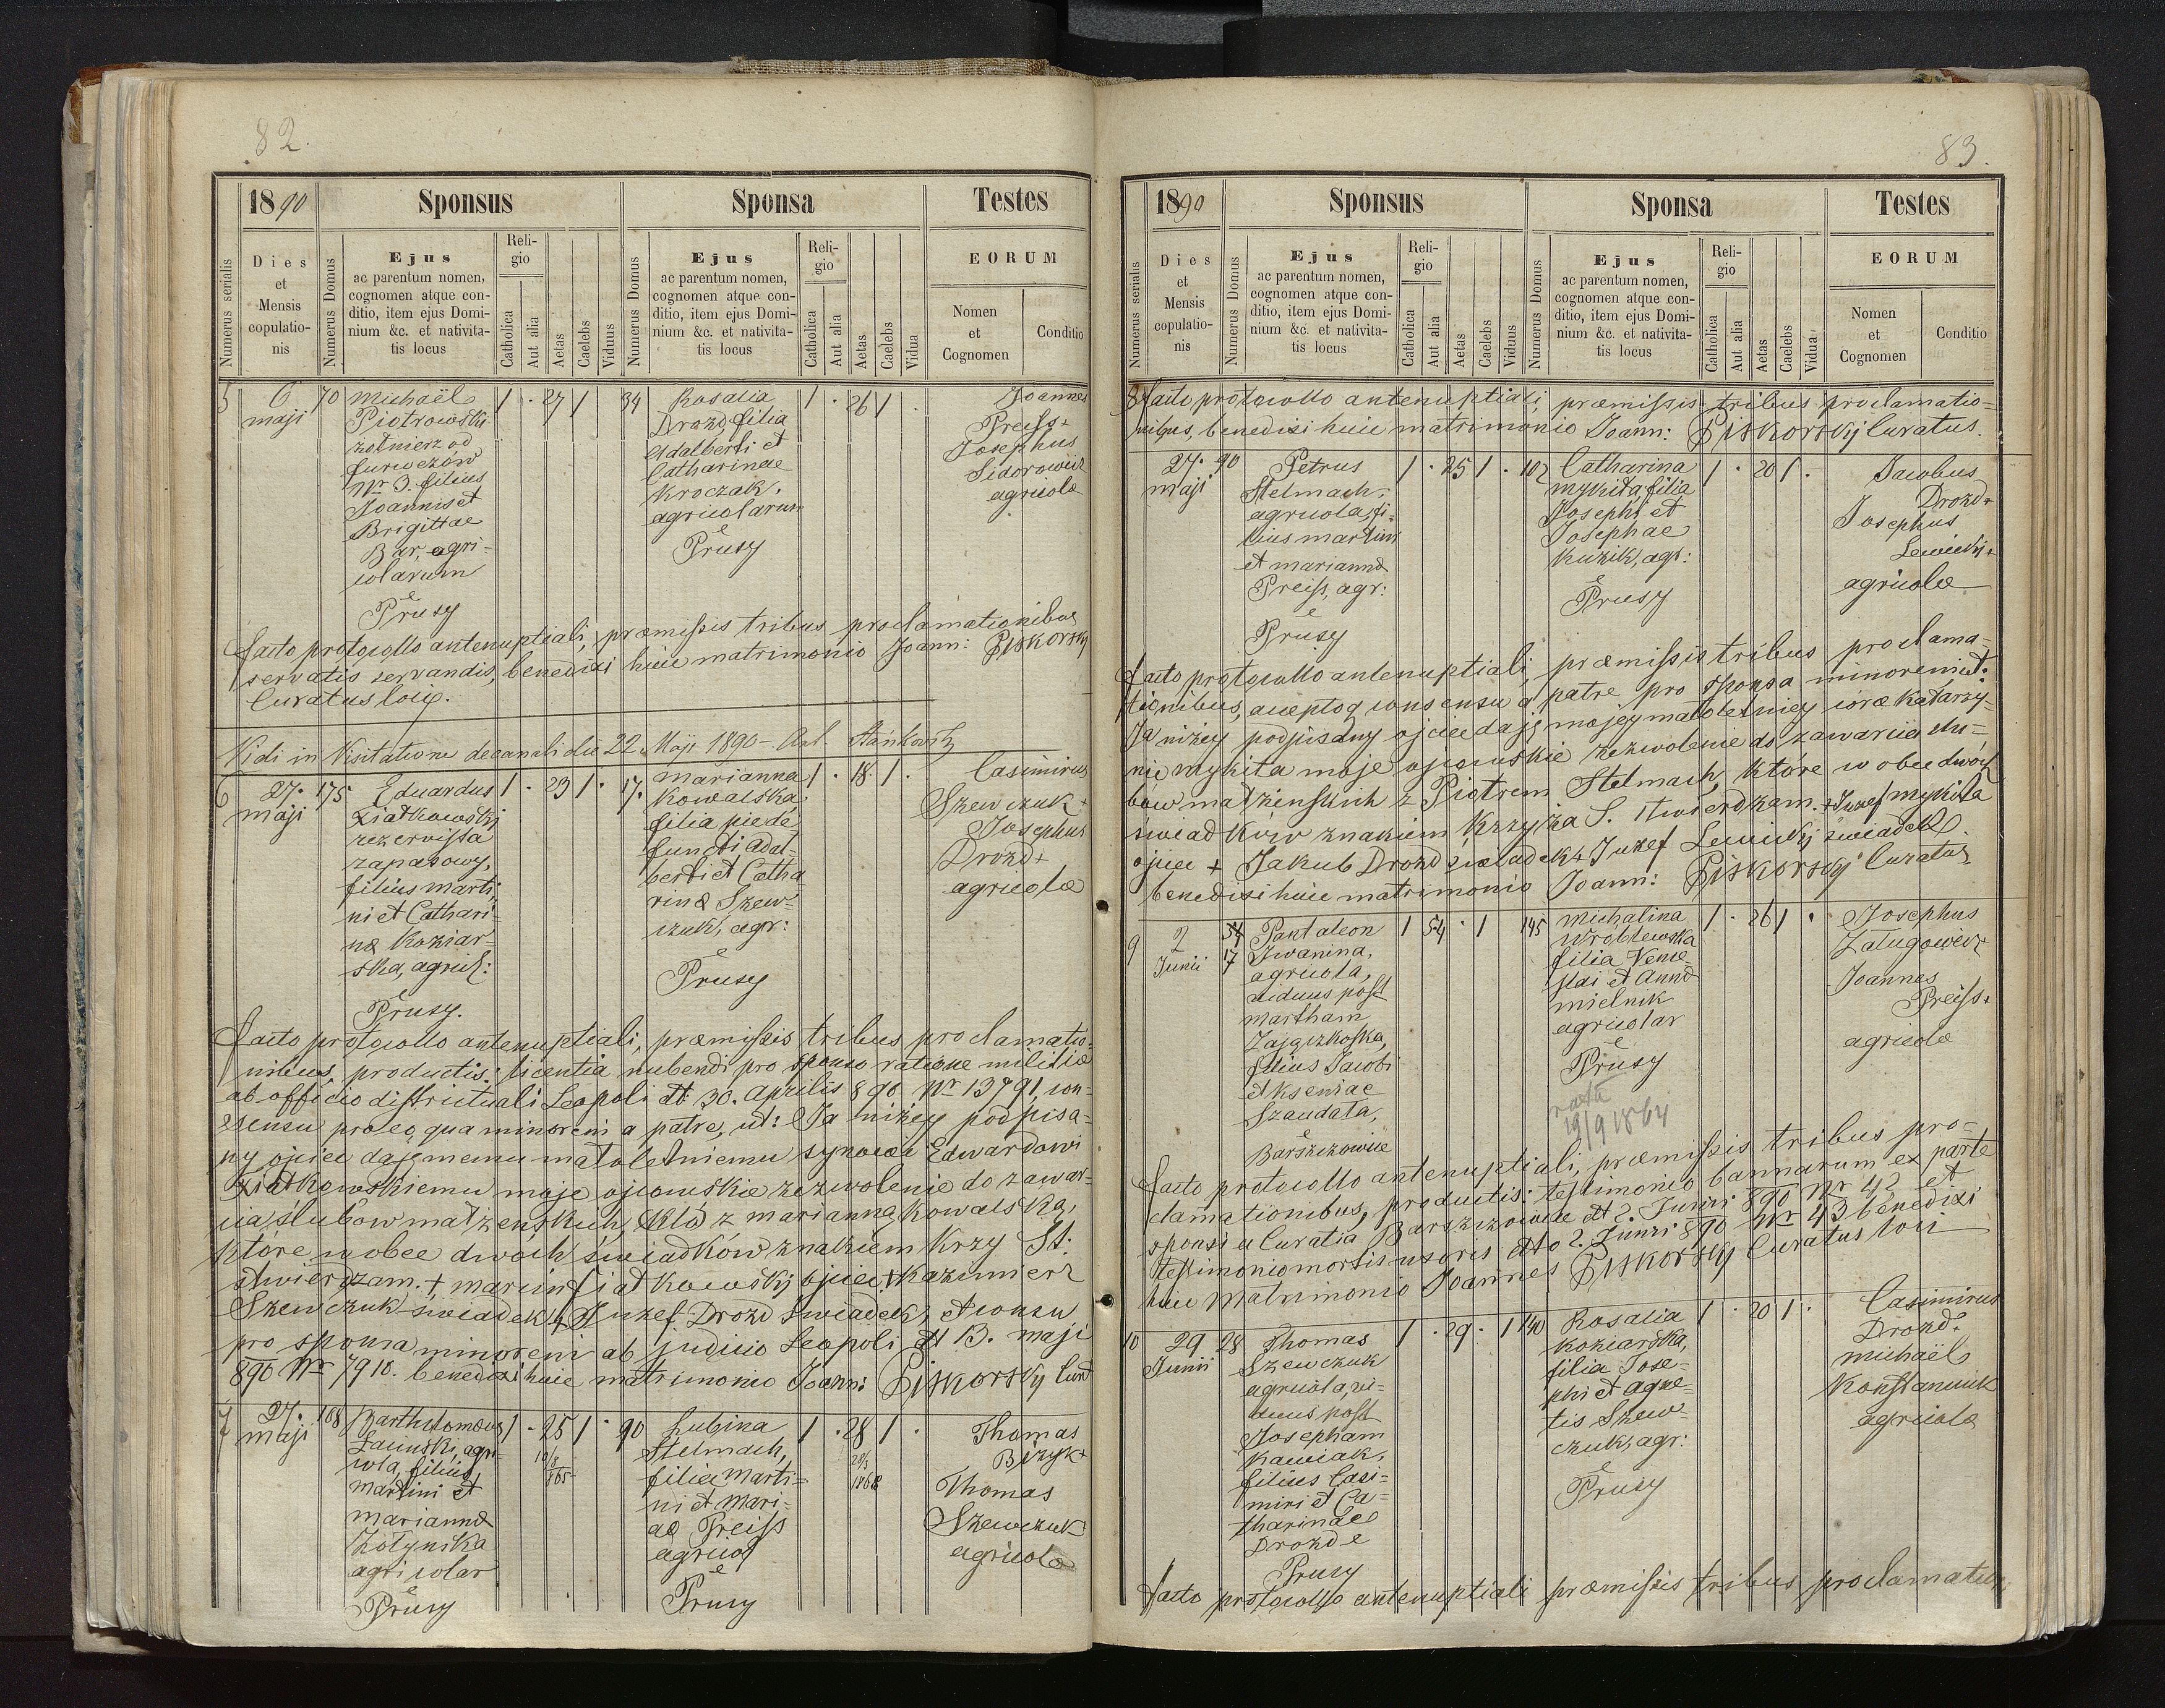 82.
1890 Sponsus Sponsa Testes
Numerus serialis
Dies et Mensis copulationis
Numerus Domus
Ejus ac parentum nomen, cognomen atque conditio, item ejus Dominium &c. et nativitatis locus
Religio
Catholica
Aut alia
Aetas
Caelebs
Viduus
Numerus Domus
Ejus ac parentum nomen, cognomen atque conditio, item ejus Dominium &c. et nativitatis locus
Religio
Catholica
Aut alia
Aetas
Caelebs
Vidua
EORUM
Nomen et Cognomen
Conditio
5
6
maji
70
Michaël
Piotrowski
żołnierz od
Nr 3. filius
Joannis et
Brigittae
Bar, agri-
colarum
e
Prusy
1 . 27 1
34
Rosalia
Drozd, filia
Adalberti et
Catharinae
Kroczak,
agricolarum
e
Prusy
1 . 26 1 .
Joannes
Preiss+
Josephus
Sidorowicz
agricolæ
facto protocollo antenuptiali, præmissis tribus proclamationibus
servatis servandis, benedixi huic matrimonio Joann: Piskorskij
Curatus loci.
Vidi in Visitatione decanali die 22 Maji 1890 - Ant. Stańkowski
6
27.
maji
175
Eduardus
Ziatkowskij
rezervista
zapasowy,
filius Marti-
ni et Cathari-
næ Koziar-
ska, agric:
e
Prusy.
1 . 23 1 .
17.
Marianna
Kowalska
filia pie de-
functi Adal-
berti et Catha-
rinæ Szew-
czuk, agr:
e
Prusy
1 . 18. 1 .
Casimirus
Szewczuk+
Josephus
Drozd+
agricolæ
facto protocollo antenuptiali, præmissis tribus proclamatio-
nibus, productis: licentia nubendi pro sponso ratione militiæ
ab officio districtuali Leopoli dt 30. Aprilis 890 Nr 13791, con-
sensu pro eo, qua minoreni a patre, ut: Ja niżej podpisa-
ny ojciec daję memu małoletniemu synowi Edwardowi
Ziatkowskiemu moje ojcowskie zezwolenie do zawar-
cia ślubow małżenskich, z Marianną Kowalską,
które wobec dwoch świadków znakiem Krzy St:
stwierdzam. + Marcin Ziatkowskij ojciec + Kazimierz
Szewczuk świadek + Juzef Drozd świadek, et consensu
pro sponsa minoreni ab judicio Leopoli dt 13. maji
890 Nr 7910. benedixi huic matrimonio Joann: Piskorskij Curat
7
27.
maji
168
Bartholomæus
agri-
cola, filius
Martini et
Mariannæ
Żołyńska
agricolar
e
Prusy
1 . 25 1 .
10/8
865
90
Lubina
Stelmach,
filia Marti-
ni et Mari-
æ Preiss
agricol
e
Prusy
1 . 28 1 .
Thomas
Bizyk+
Thomas
Szewczuk
agricolæ
83.
1890 Sponsus Sponsa Testes
Numerus serialis
Dies et Mensis copulationis
Numerus Domus
Ejus ac parentum nomen, cognomen atque conditio, item ejus Dominium &c. et nativitatis locus
Religio
Catholica
Aut alia
Aetas
Caelebs
Viduus
Numerus Domus
Ejus ac parentum nomen, cognomen atque conditio, item ejus Dominium &c. et nativitatis locus
Religio
Catholica
Aut alia
Aetas
Caelebs
Vidua
EORUM
Nomen et Cognomen
Conditio
8 facto protocollo antenuptiali, præmissis tribus proclamatio-
nibus, benedixi huic matrimonio Joann: Piskorskij Curatus.
27.
maji
90
Petrus
Stelmach,
agricola, fi-
lius Martini
et Mariannæ
Preiss, agr:
e
Prusy
1 . 25 1 .
102
Catharina
Mykita, filia
Josephi et
Josephae
Kuzik, agr:
e
Prusy
1 . 20 1 .
Jacobus
Drozd+
Josephus
Lewickij+
agricolæ
facto protocollo antenuptiali, præmissis tribus proclama-
tionibus, acceptoq consensu a patre pro sponsa minoreni ut:
Ja niżej podpisany ojciec daję mojej małoletniej córce Katarzy-
nie Mykita moje ojcowskie zezwolenie do zawarcia ślu-
bów małżenskich z Piotrem Stelmach, które w obec dwóch
świadków znakiem Krzyża S. stwierdzam. + Juzef Mykita
ojciec + Jakub Drozd świadek + Juzef Lewickij świadek.
benedixi huic matrimonio Joann: Piskorskij Curatus
9
2
Junii
17
Pantaleon
Iwanina,
agricola,
viduus post
Martham
filius Jacobi
et Kseniae
Szaudała,
e
Barszczowice
1 54 . 1
145
Michalina
Wróblewska
filia Vence-
slai et Annæ
Mielnik
agricolar
e
Prusy
nata
19/9 1864
1 . 26 1 .
Josephus
Załugowicz+
Joannes
Preiss+
agricolæ
facto protocollo antenuptiali, præmissis tribus pro-
clamationibus, productis: testimonio bannarum ex parte
sponsi a Curatia Barszczowice dt 2. Junii 890 Nr 42 et
testimonio mortis uxoris dto 2. Junii 890 Nr 43 benedixi
huic Matrimonio Joannes Piskorskij Curatus loci
10
29
Junii
28
Thomas
Szewczuk
agricola, vi-
duus post
Josepham
Kawiak,
filius Casi-
miri et Ca-
tharinae
Drozd e
Prusy
1 . 29 . 1
140
Rosalia
Koziarska,
filia Jose-
phi et Agne-
tis Szew-
czuk, agr:
e
Prusy
1 . 20 1 .
Casimirus
Drozd+
Michaël
Konstanciuk
agricolæ
facto protocollo antenuptiali præmissis tribus proclamatio